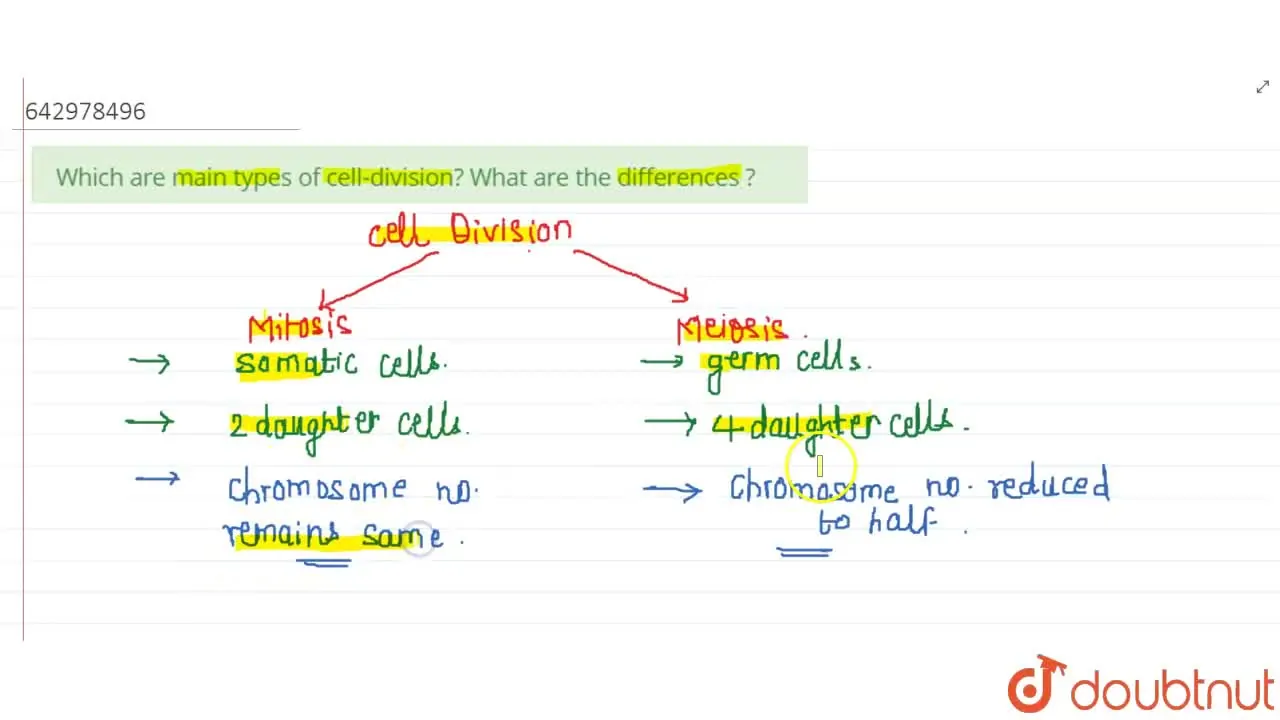 642978496
Which are main types of cell-division? What are the differences ?
cell Division
Mitosis
Meiosis.
→ somatic cells.
→ germ cells.
→ 2 daughter cells.
→ 4 daughter cells.
→ chromosome no.
remains same.
→ chromosome no. reduced
to half.
doubtnut